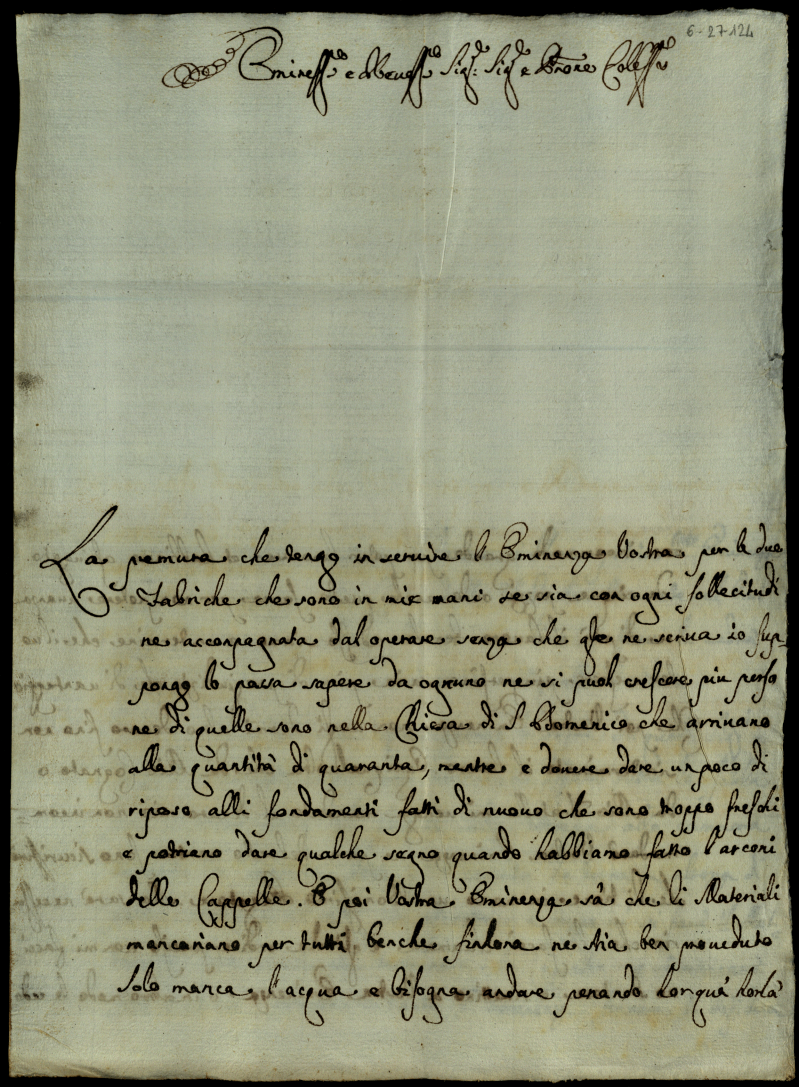 6-27-124
Eminess.mo e Reuess.mo Sig.r Sig.r e Prone Coless.mo
La premura che tengo in seruire l Eminenza Vostra per le due
Fabriche che sono in mie mani se sia con ogni sollecitudi
ne acconpagnata dal operare senza che qste ne scriua io sup-
pongo lo possa sapere da ognuno ne si puol crescere piu perso
ne di quelle sono nella Chiesa di S Domenico che arriuano
alla quantità di quaranta, mentre e douere dare un poco di
riposo alli fondamenti fatti di nuouo che sono troppo freschi
e potriano dare qualche segno quando habbiamo fatto l arconi
delle Cappelle. E poi Vostra Eminenza sà che li Materiali
mancariano per tutti benche sinhora ne stia ben proueduto
solo manca l'acqua e bisogna andare penando hor quà hor là